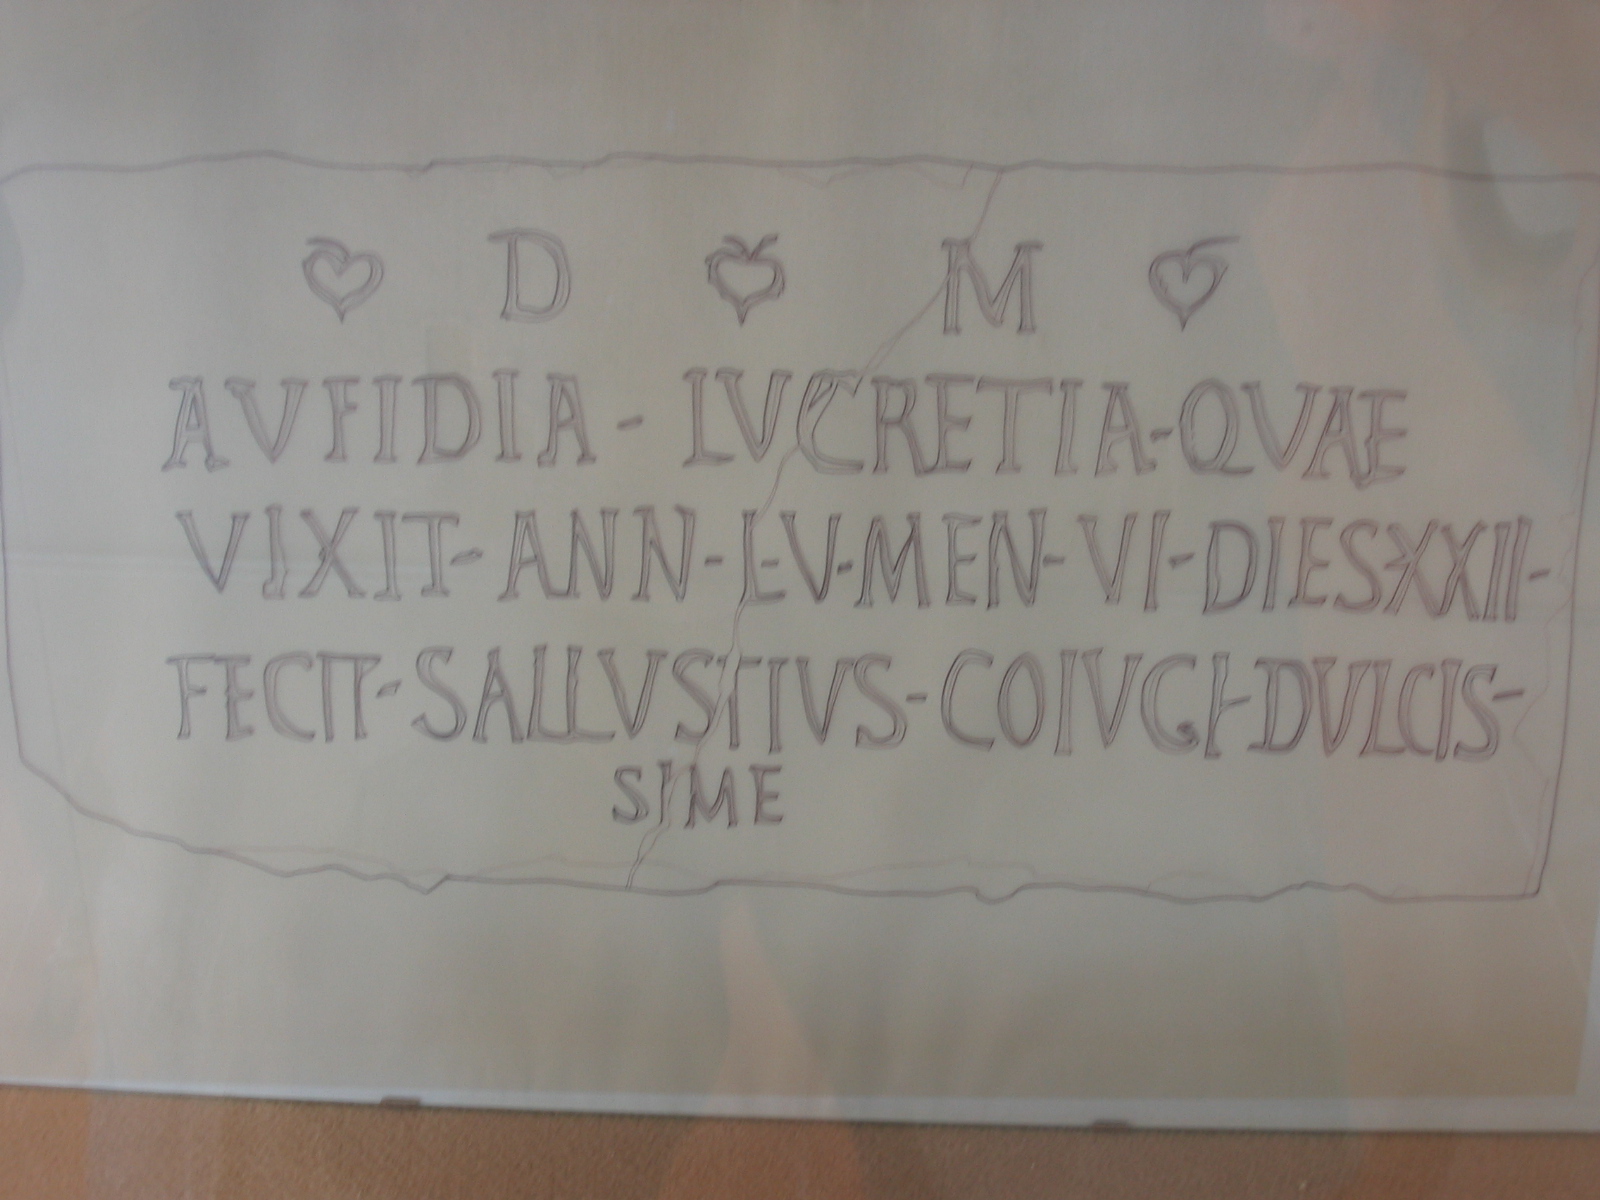 ❦ D ❦ M ❦
AVFIDIA - LVCRETIA - QVAE
VIXIT - ANN - LV - MEN - VI - DIES XXII -
FECIT - SALLVSTIVS - COIVGI - DVLCIS -
SIME